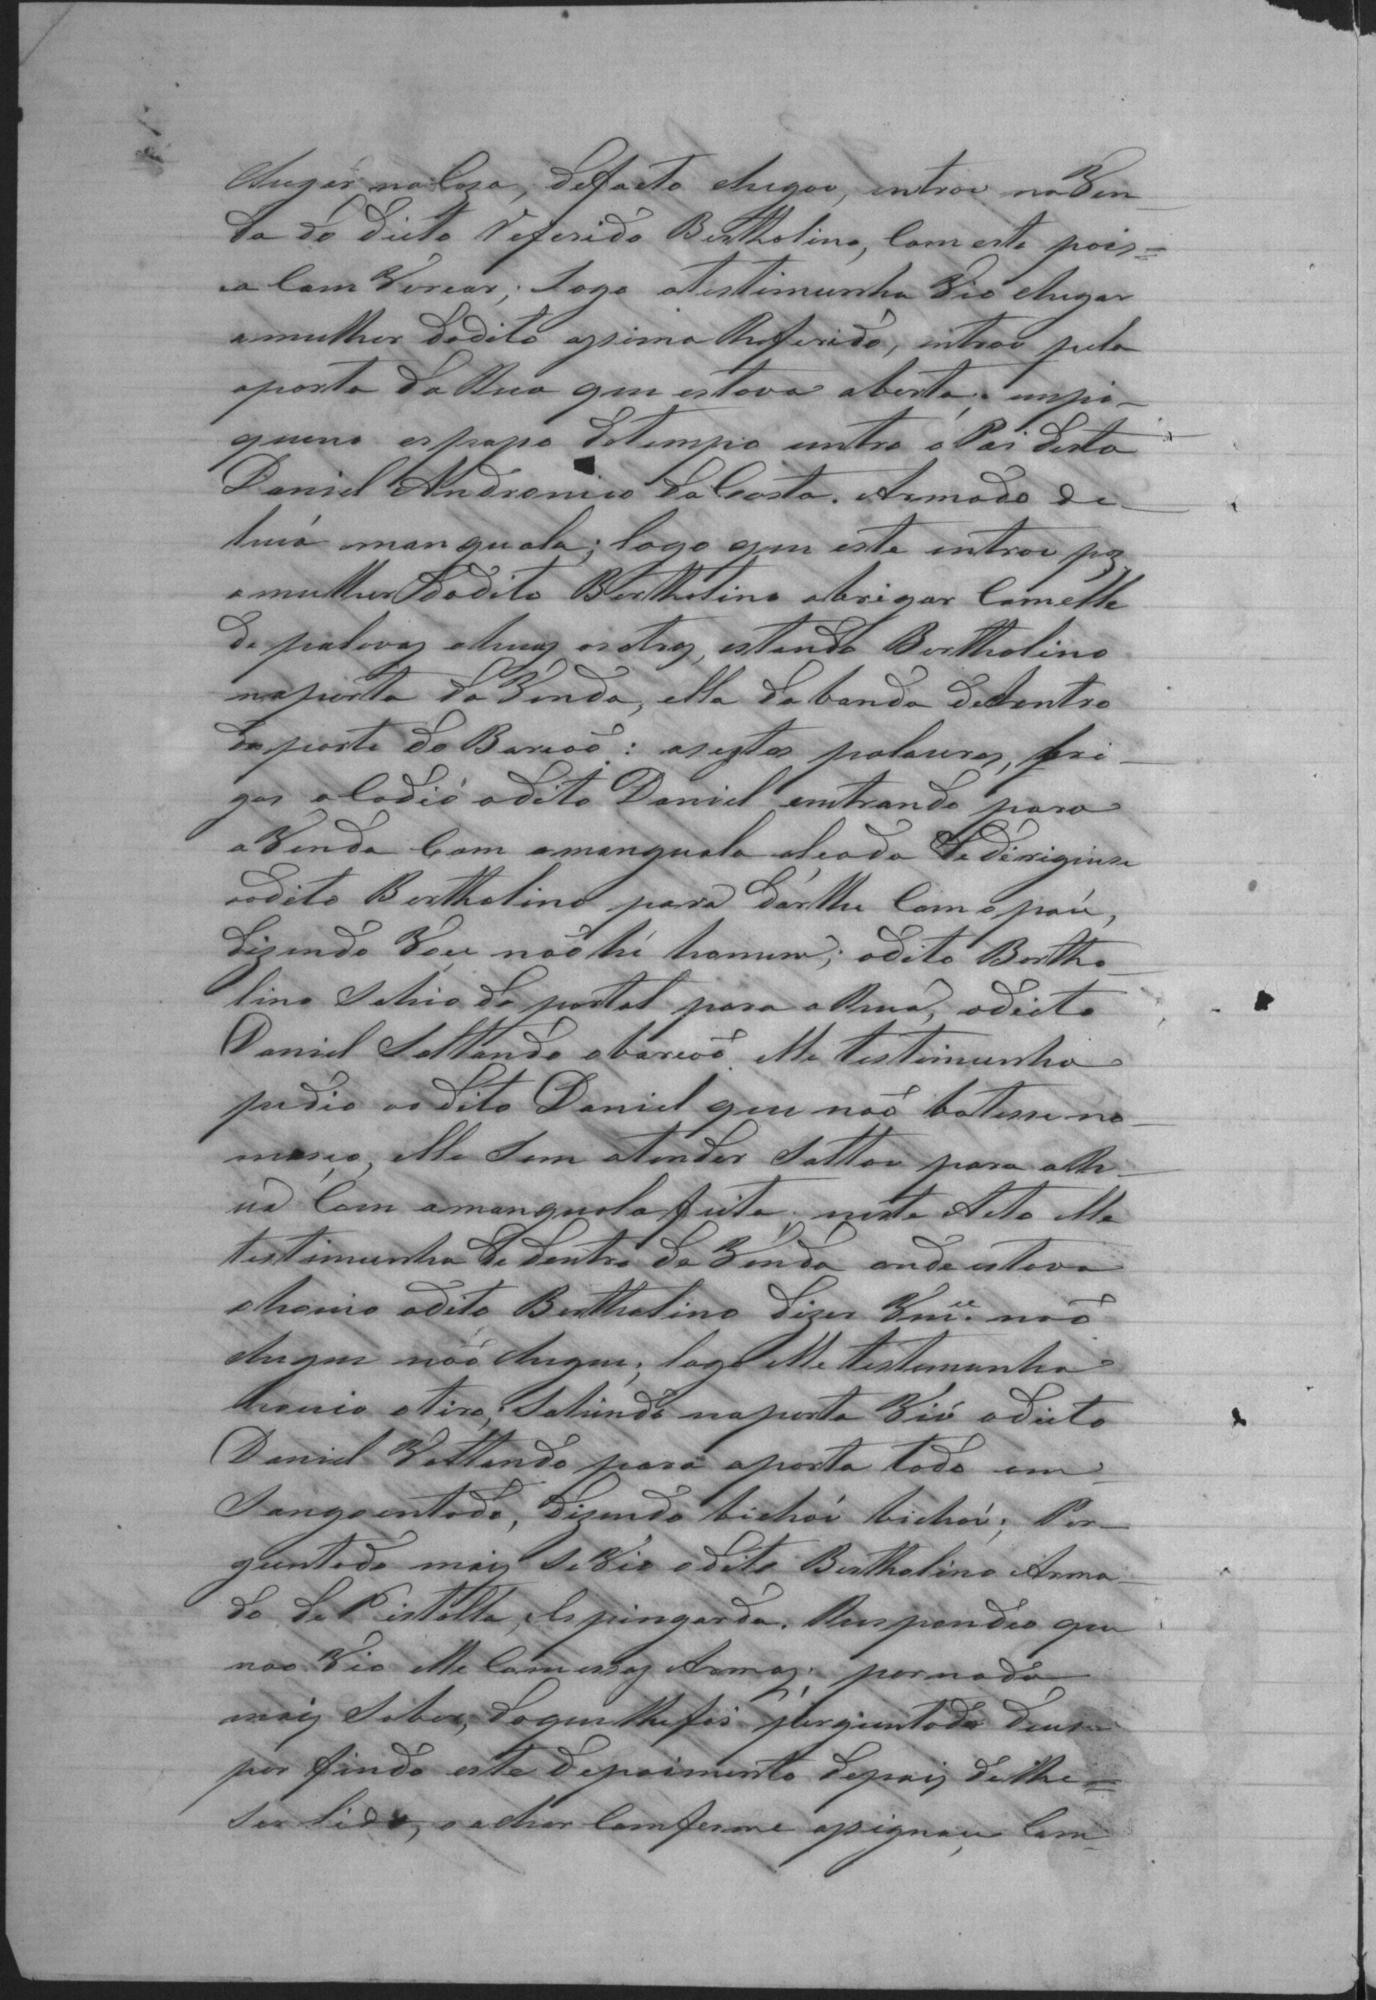 chegár na Caza, defacto chegou, entrou na Ven-
da do dicto referido Bertholino, com este pois=
a Com Vercar; logo a testimunha Vio chegar
a mulher do dito assima Referido, entrou pela
a porta da Rua que estava aberta; em pi-
queno espaço de tempo entra o Pai desta
Daniel Andronico da Costa. Armado de
huá manguala; logo que este entrou poz
a mulher do dito Bertholino abrigar Com elle
de palavaz estando Bertholino
na porta da Venda, ella da banda de dentro
da parte do Barcaõ: a estas palauras,
o dito Daniel entrando para
a Venda Com a manguala alcada Se dirigiuse
ao dito Bertholino para dár lhe Com o páu,
dizendo Você naõ hé homem; o dito Bertho-
lino Sahio do portal para a Ruá, o dicto
Daniel Saltando o barcaõ. elle testimunha
pedio ao dito Daniel que naõ batesse no
moço, elle Sem atender Saltou para a R-
uá Com a manguala feita; neste Acto elle
testimunha de dentro da Venda onde estava
ohouvio o dito Bertholino dizer Vm.ce naõ
chegue naõ chegue; logo elle testemunha
houvio o tiro; Sahindo na porta Vió o dicto
Daniel Voltando para a porta todo em
Sangoentado, dizendo bichói bichói; Per-
guntado maiz Se Vio o dito Bertholino Arma-
do de Pistolla, Espingarda. Respondeo que
nao Vio elle Com essaz Armaz; por nada
maiz Saber, do que lhe foi perguntado deuse
por findo este depoimento depoiz de lhe=
Ser lido, e achar Comforme assignou Com